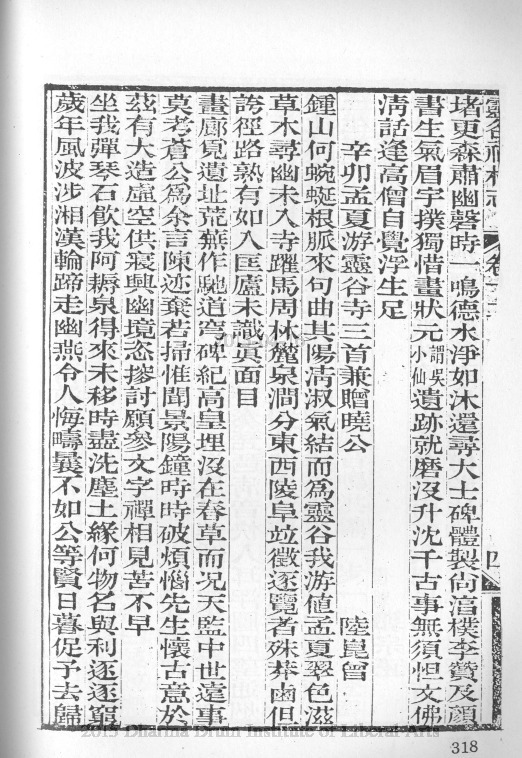 靈谷禪林志 卷十三 四
堵更森肅幽磬時一鳴德水淨如沐還尋大士碑體製尙渲樸李贊及顏
書生氣眉宇撲獨惜畫狀元謂吳小仙遺跡就磨沒升沈千古事無須怛文佛
淸話逢高僧自覺浮生足
辛卯孟夏游靈谷寺三首兼贈曉公
陸崑曾
鍾山何蜿蜒根脈來句曲其陽淸淑氣結而爲靈谷我游値孟夏翠色滋
草木尋幽未入寺躍馬周林麓泉澗分東西陵阜竝徵逐覽者殊莽鹵但
誇徑路熟有如入匡廬未識眞面目
畫廊覓遺址荒蕪作馳道穹碑紀高皇埋沒在春草而况天監中世遠事
莫考蒼公爲余言陳迹棄若掃惟聞景陽鐘時時破煩惱先生懷古意於
茲有大造虛空供寢興幽境恣摉討願參文字禪相見苦不早
坐我彈琴石飮我阿耨泉得來未移時盡洗塵土緣何物名與利逐逐窮
歲年風波涉湘漢輪蹄走幽燕令人悔疇曩不如公等賢日暮促予去歸
2013 Dharma Drum Institute of Liberal Arts
318